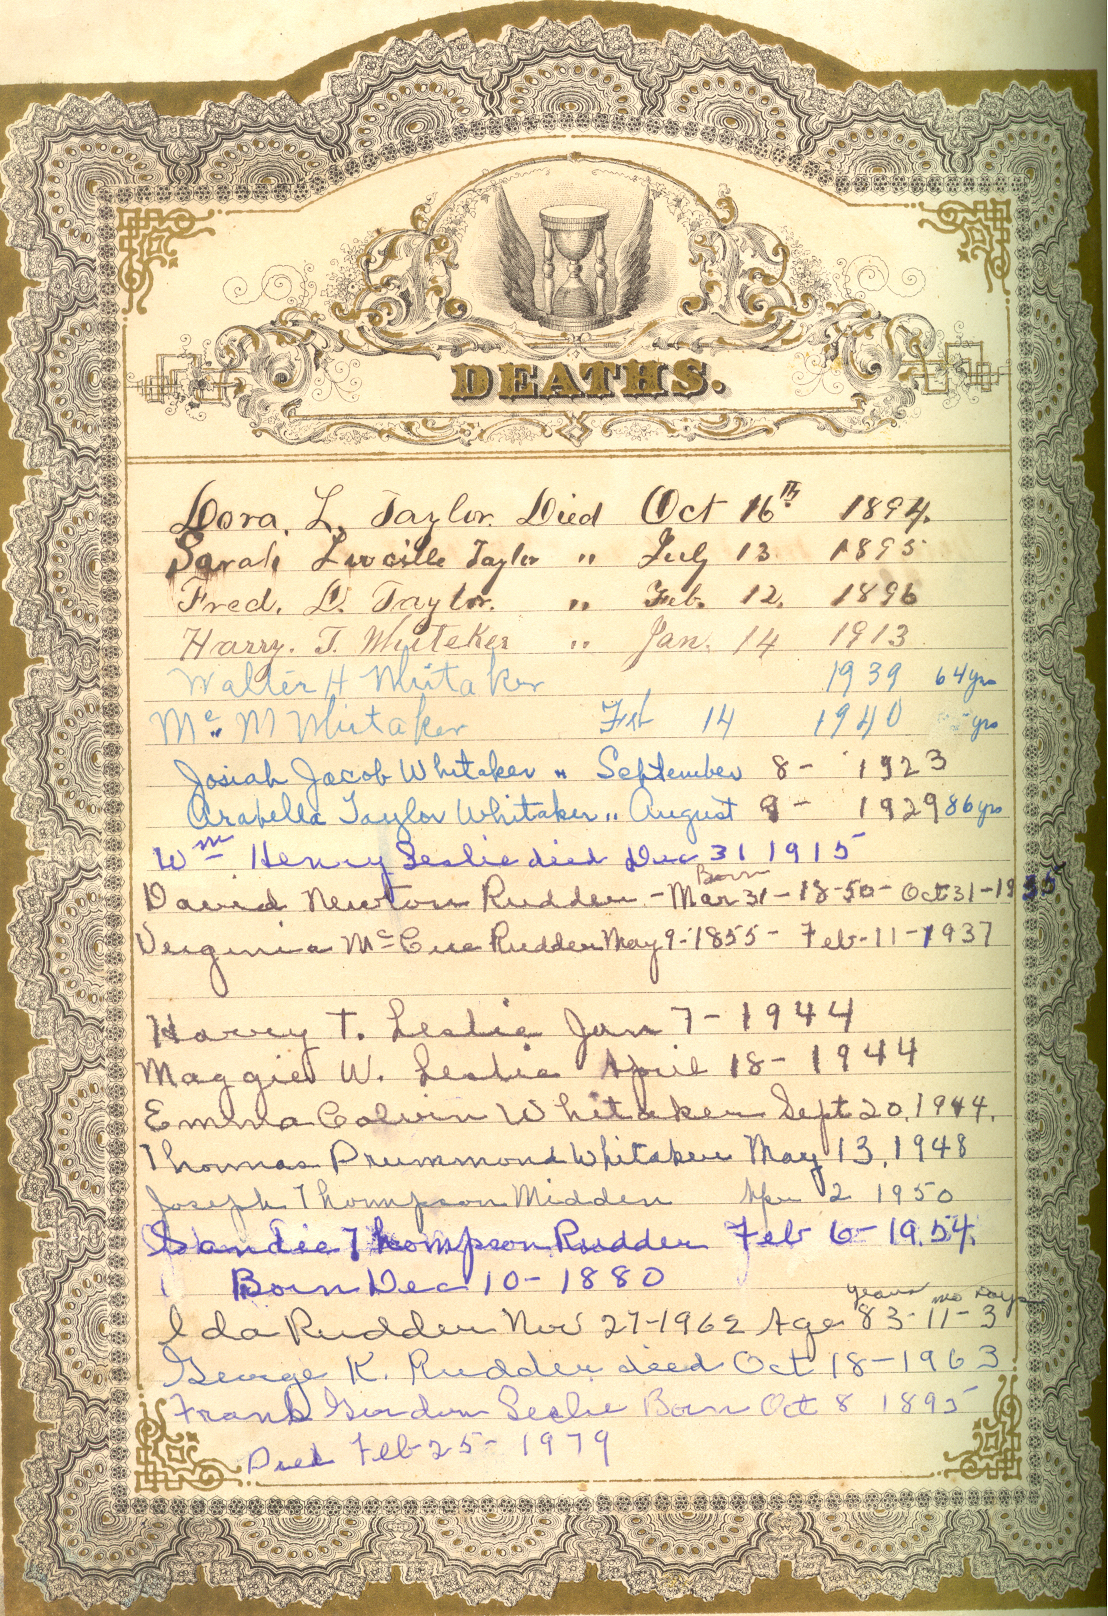 DEATHS.
Dora. L. Taylor. Died Oct 16th 1894.
Sarah Lucille Taylor " July 13 1895
Fred. D. Taylor. " Feb. 12. 1896
Harry. T. Whitaker " Jan. 14 1913
Walter H Whitaker 1939 64 yrs
Mc. M Whitaker Feb 14 1940 yrs
Josiah Jacob Whitaker " September 8 - 1923
Arabella Taylor Whitaker " August 9 - 1929 86 yrs
Wm Henry Leslie died Dec 31 1915
Born
David Newton Rudder - Mar 31 - 18-50 - Oct 31 - 1935
Virginia McCue Rudder May 9 - 1855 - Feb - 11 - 1937
Harvey T. Leslie Jan 7 - 1944
Maggie W. Leslie April 18 - 1944
Emma Colvin Whitaker Sept 20, 1944.
Thomas Drummond Whitaker May 13, 1948
Joseph Thompson Midden Apr 2 1950
Thompson Rudder Feb 6 - 1954.
Born Dec 10 - 1880
years mo days
Ida Rudder Nov 27 - 1962 Age 83 - 11 - 3
George K. Rudder died Oct 18 - 1963
Frank Gordon Leslie Born Oct 8 1895
Died Feb 25 - 1979